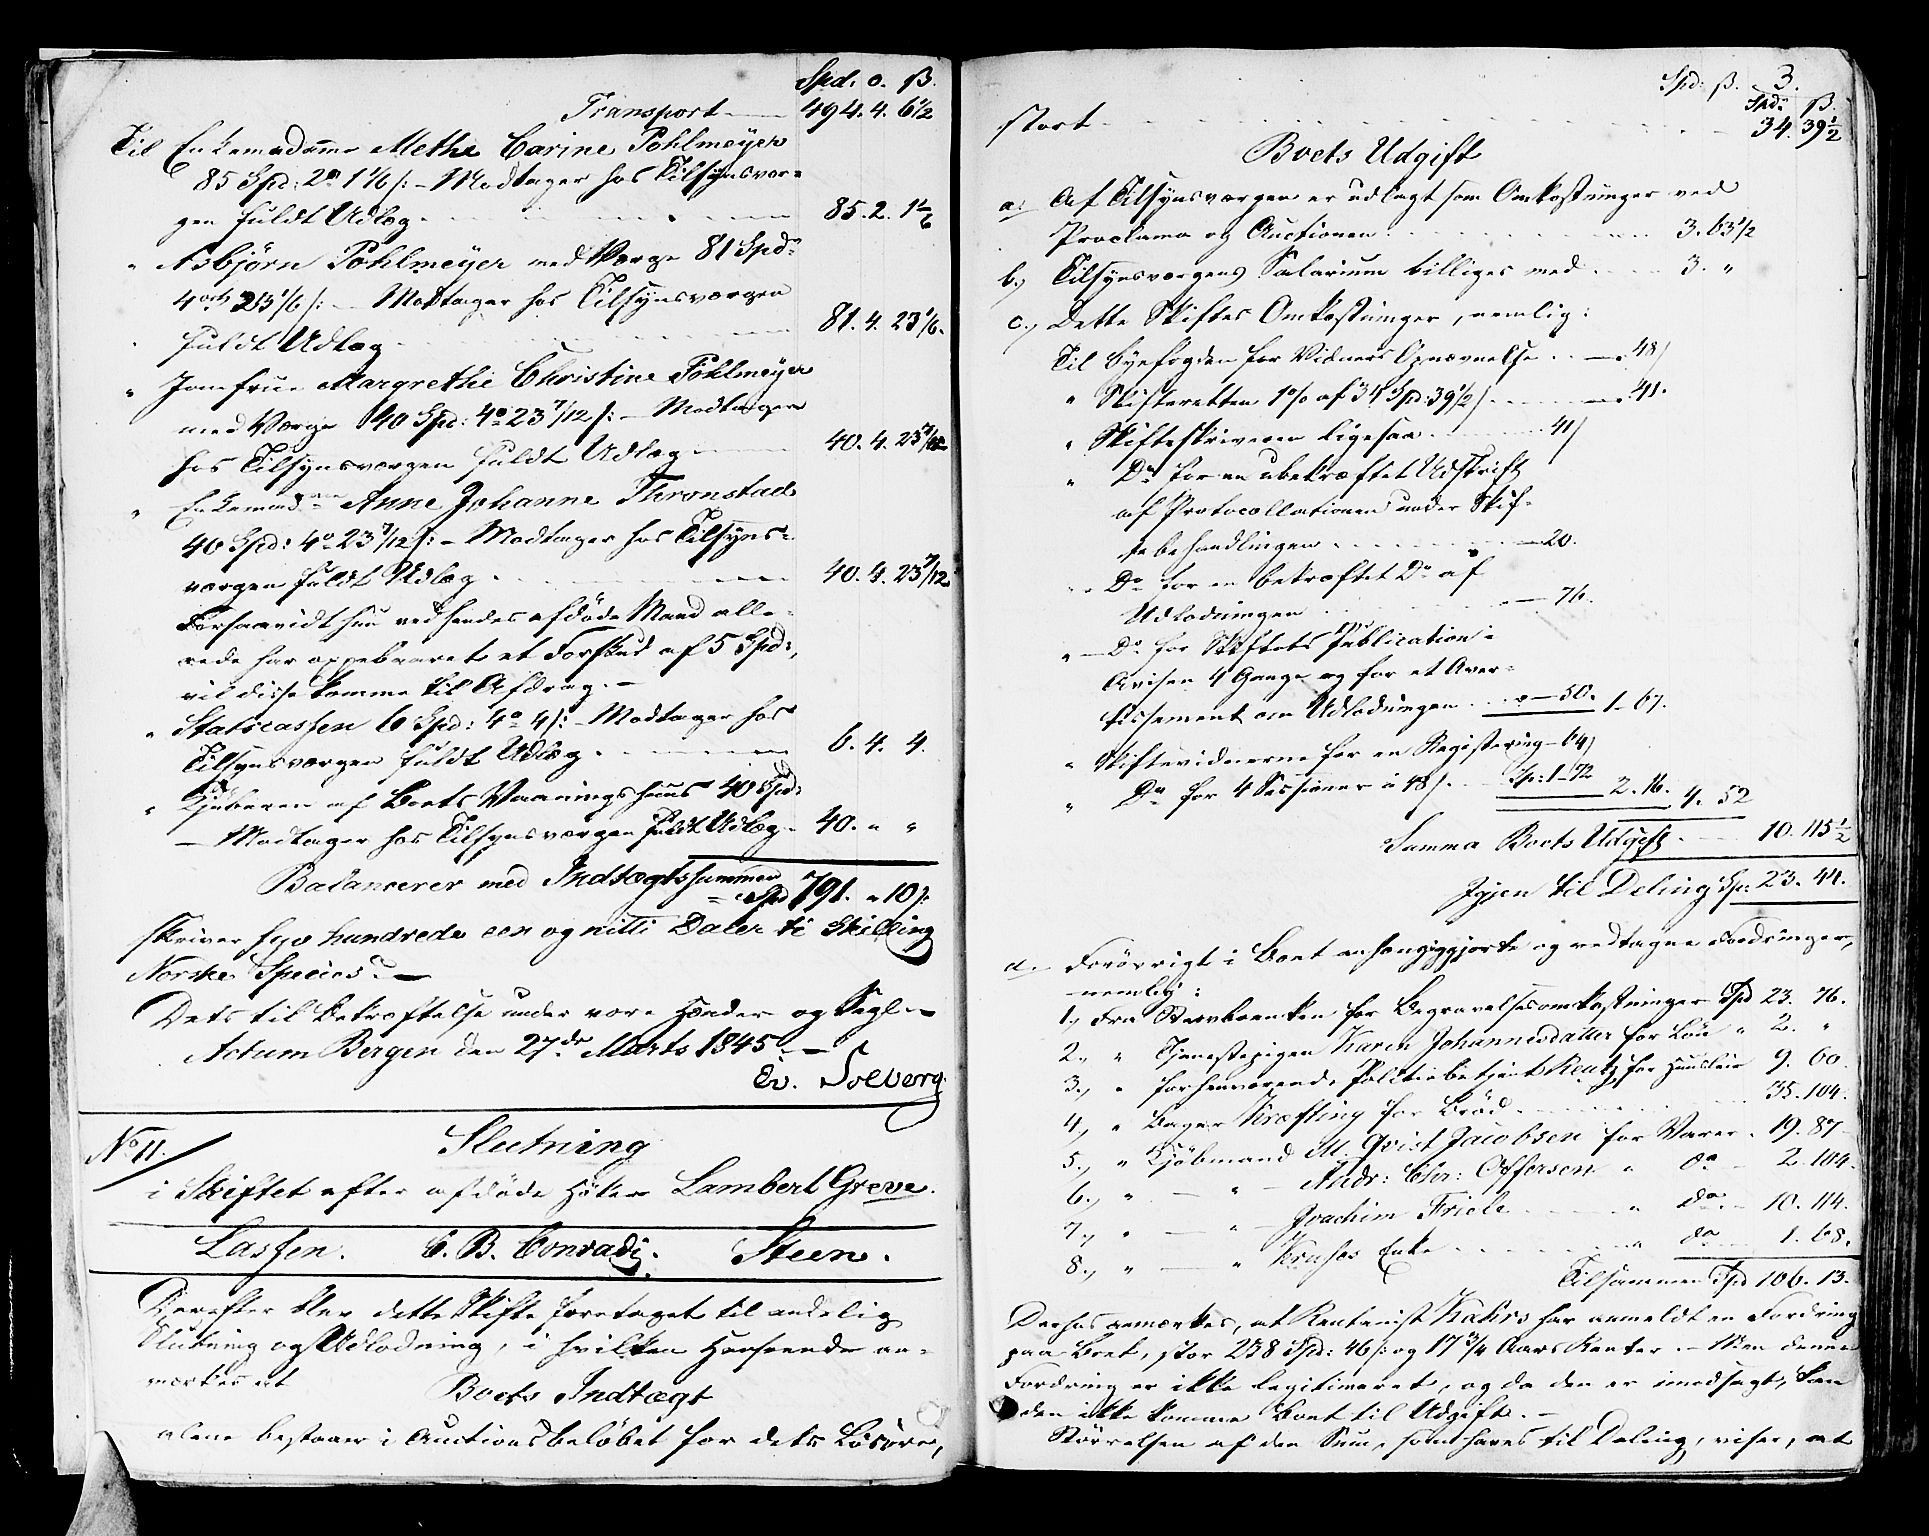 Spd. o. ß.
Transport 494. 4. 6 1/2
Til Enkemadame Methe Carine Pohlmeyer
85 Spd: 2o 1 1/6 /: – Modtager hos Tilsynsvær=
gen fuldt Udlæg 85. 2. 1 1/6
" Asbjörn Pohlmeyer med Værge 81 Spd:
4ort 23 1/6 /: – Modtager hos Tilsynsværgen
fuldt Udlæg 81. 4. 23 1/6.
" Jomfrue Margrethe Christine Pohlmeyer
med Værge 40 Spd: 4o 23 7/12 /: – Modtager
hos Tilsynsværgen fuldt Udlæg 40. 4. 23 7/12
" Enkemadme Anne Johanne Thronstad
40 Spd: 4o 23 7/12 /: – Modtager hos Tilsyns=
værgen fuldt Udlæg 40. 4. 23 7/12
Forsaavidt hun ved hendes afdöde Mand alle=
rede har oppebaaret et Forskud af 5 Spd:,
vil disse komme til Afdrag. –
" Statscassen 6 Spd: 4o 4 /: – Modtager hos
Tilsynsværgen fuldt Udlæg 6. 4. 4.
" Kjöberen af Boets Vaaningshuus 40 Spd:
– Modtager hos Tilsynsværgen fuldt Udlæg 40. " "
Balancerer med Indtægtssummen
Spd 791. " 10 /:
skriver syv hundrede een og nitti Daler ti Skilling
Norske Species. –
Dets til Bekræftelse under vore Hænder og Segl. –
Actum Bergen den 27de Marts 1845. –
Ev. Solberg.
No 11.
Slutning
i Skiftet efter afdöde Höker Lambert Greve.
Lassen. C. B. Conradi. Steen.
Derefter blev dette Skifte foretaget til endelig
Slutning og Udlodning, i hvilken Henseende an=
mærkes at
Boets Indtægt
alene bestaaer i Auctionsbelöbet for dets Lösöre,
3.
Spd: ß.
Spd: ß.
stort 34. 39 1/2
Boets Udgift
a. Af Tilsynsværgen er udlagt som Omkostninger ved
Proclama og Auctionen 3. 63 1/2
b., Tilsynsværgens Salarium billiges med 3. "
c., Dette Skiftes Omkostninger, nemlig:
Til Byefogden for Vidners Opnævnelse 48 /
" Skifteretten 1 % af 34 Spd: 39 1/2 / 41.
" Skifteskriveren ligesaa 41 /
" Do for en ubekræftet Udskrift
af Protocollationen under Skif=
tebehandlingen 20.
" Do for en bekræftet Do af
Udlodningen 76.
" – Do for Skiftets Publication i
Avisen 4 Gange og for et Aver=
tissement om Udlodningen 50. 1 – 67.
" Skiftevidnerne for en Registering – 64 /
" Do for 4 Sessioner à 48 /. Sp: 1 – 72 2. 16. 4. 52
Summa Boets Udgift 10. 115 1/2
Igjen til Deling Sp: 23. 44.
d. Forövrigt i Boet anhængiggjorte og vedtagne Fordringer,
nemlig:
1., Fra Stervboenken for Begravelsesomkostninger Spd 23. 76.
2., " Tjenestepigen Karen Johannesdatter for Lön " 2. "
3., " forhenværende Politiebetjent Reutz for Huusleie 9. 60.
4., " Bager Kræfting for Bröd 35. 104.
5., " Kjöbmand M. Qvist Jacobsen for Varer. 19. 87
6., " — " — Andr: Chr: Offersen " do 2. 104.
7., " — " Joachim Friele " do 10. 114.
8., " — " Kruses Enke " do 1. 68.
Tilsammen Spd 106. 13.
Derhos anmærkes, at Rentenist Kahrs har anmeldt en Fordring
paa Boet, stor 238 Spd: 46 /: og 17 3/4 Aars Renter. – Men denne
Fordring er ikke legitimeret, og da den er imodsagt, kan
den ikke komme Boet til Udgift. –
Störrelsen af den Sum, som haves til Deling, viser, at